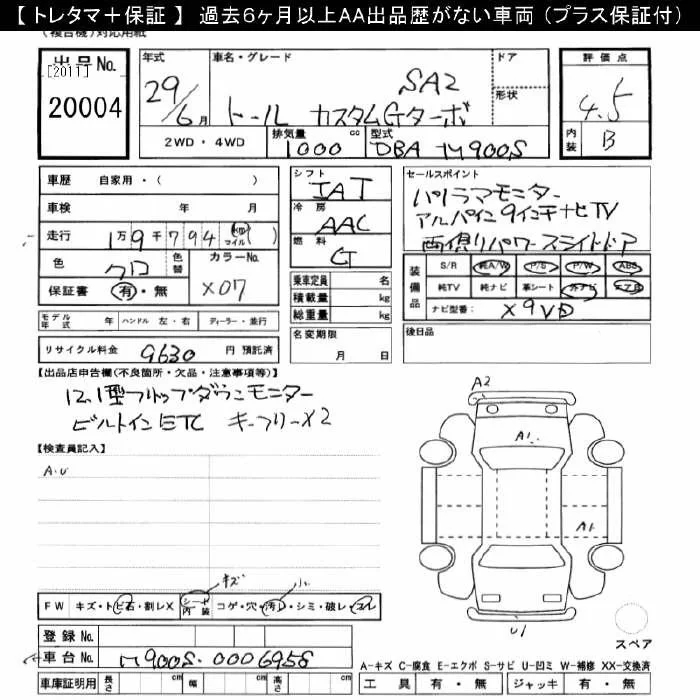 【トレタマ＋保証】 過去6ヶ月以上AA出品歴がない車両（プラス保証付）
(複合機)対応用紙
出品No.
[2011]
20004
年式 車名・グレード ドア 評価点
29/6月 SA2 形状 4.5
トール カスタムGターボ
2WD・4WD 排気量 1000 cc 型式 DBA M900S 内装 B
車歴 自家用・( ) シフト IAT セールスポイント
車検 年 月 冷房 AAC パノラマモニター
アルパイン9インチナビTV
走行 1万9千794 km マイル ( ) 燃料 G 両側パワースライドドア
色 クロ 色替 カラーNo. X07
保証書 有・無
乗車定員 名
積載量 kg
総重量 kg
装備品 S/R 純A/W P/S P/W ABS
純TV 純ナビ 革シート 外ナビ エアB
ナビ型番: X9VD
モデル年式 年 ハンドル 左・右 ディーラー・並行
名変期限 月 日
後日品
リサイクル料金 9630 円 預託済
【出品店申告欄(不良箇所・欠品・注意事項等)】
12.1型フリップダウンモニター
ビルトインETC キーフリーX2
A2
A1
【検査員記入】
A.U
A1
キズ 小
FW キズ・トビ石・割レX シート内装 コゲ・穴・汚レ・シミ・破レ・コレ
登録No.
車台No. M900S-0006958
U1
スペア
A-キズ C-腐食 E-エクボ S-サビ U-凹ミ W-補修 XX-交換済
車庫証明用 長さ cm 幅 cm 高さ cm 工具 有・無 ジャッキ 有・無